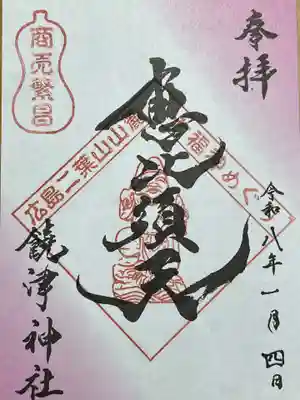 奉拝
商売繁昌
広島二葉山山麓
七福神めぐり
恵比須天
令和八年一月四日
饒津神社